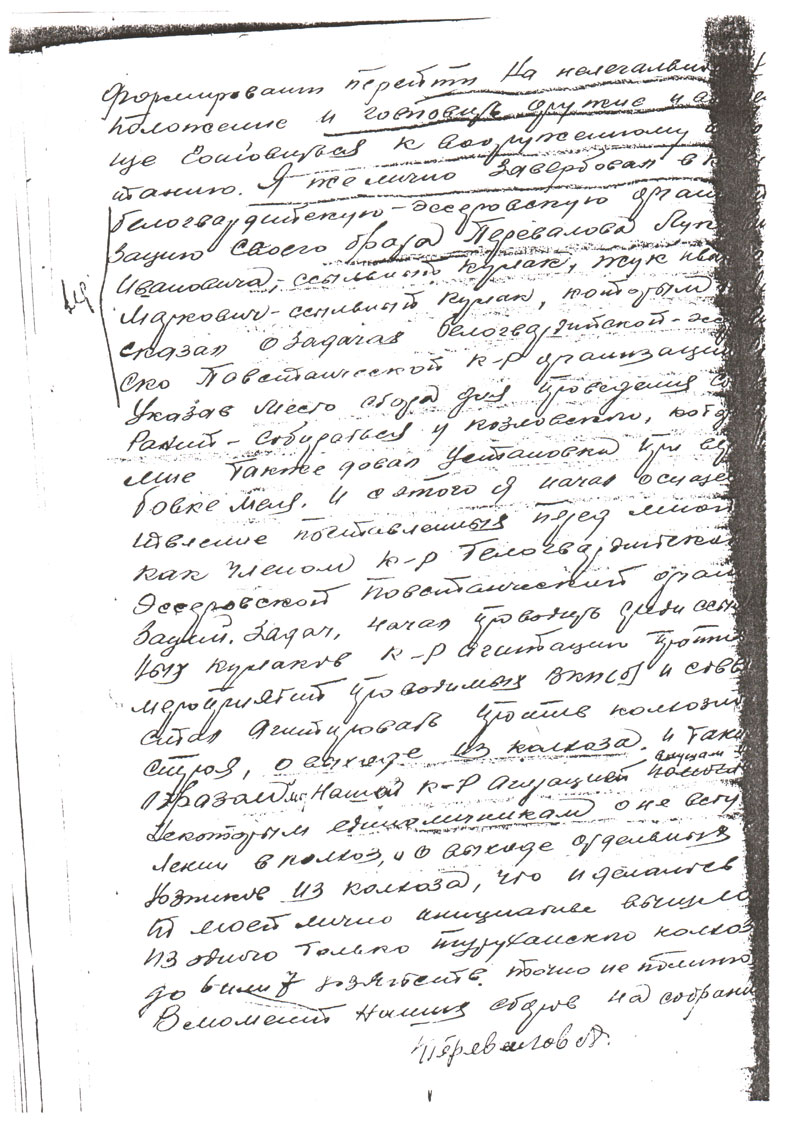 формировали перейти на нелегальн
положение и готовить оружие и
ще Готовиться к вооруженному
станию. Я же лично завербовал в к
белогвардейскую-эсеровскую орган
зацию своего брата Перевалова Лук
Ивановича, ссыльный кулак, Жук Ив
Маркович-ссыльный кулак, которым
сказал о задачах белогвардийской-эс
ско Повстанческой к-р организаци
указав место сбора для проведения со
раний - собираться у Козловского, кот
мне также довал установки при вер
бовке меня. И с этого я начал осущес
ствление поставленных перед мной
как членом к-р белогвардийской
эссеровской повстанческий орган
зации. Задач, начал проводить среди ссы
ных кулаков к-р агитацию проти
мероприятий проводимых ВКП(б) и совв
стал Агитировать против колхозно
строя, о выходе из колхоза. и таки
образом Нашей к-р Агитацией
Некоторым единоличникам о не всту
лении в колхоз, и о выходе отдельных
хозяиков из колхоза, что и делалось
по моей лично инициативе вышло
из одного только туруханского колхоз
до 6 или 7 хозяйств. точно не помню
В момент Наших сборов на собрани
Перевалов